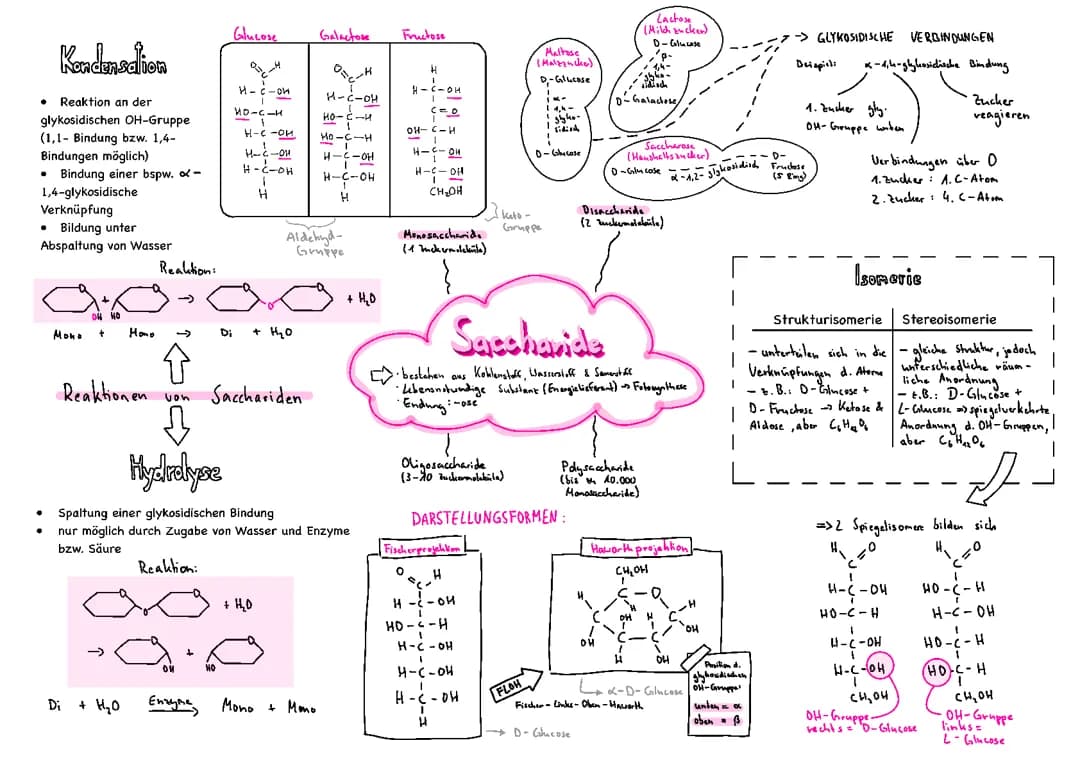 Kondensation
• Reaktion an der
glykosidischen OH-Gruppe
(1,1- Bindung bzw. 1,4-
Bindungen möglich)
• Bindung einer bspw. α-
1,4-glykosidische
Verknüpfung
• Bildung unter
Abspaltung von Wasser
Reaktion:
OH HO
+ → + H₂O
Mono + Mono → Di + H₂O
Reaktionen von Sacchariden
Hydrolyse
• Spaltung einer glykosidischen Bindung
• nur möglich durch Zugabe von Wasser und Enzyme
bzw. Säure
Reaktion:
+ H₂O
→ + 
OH HO
Di + H₂O Enzyme Mono + Mono
Glucose Galactose Fructose
Aldehyd-
Gruppe
Keto-
Gruppe
Monosaccharide
(1 Zuckermolekül)
Disaccharide
(2 Zuckermoleküle)
Maltose
(Malzzucker)
D-Glucose
α-
1,4-
glyko-
sidisch
D-Glucose
Lactose
(Milchzucker)
D-Glucose
β-
1,4-
glyko-
sidisch
D-Galactose
Saccharose
(Haushaltszucker)
D-Glucose α-1,2-glykosidisch D-
Fructose
(5 Ring)
→ GLYKOSIDISCHE VERBINDUNGEN
Beispiel: α-1,4-glykosidische Bindung
1. Zucker gly.
OH-Gruppe unten
Zucker
reagieren
Verbindungen über O
1. Zucker: 1. C-Atom
2. Zucker: 4. C-Atom
Saccharide
• bestehen aus Kohlenstoff, Wasserstoff & Sauerstoff
• Lebensnotwendige Substanz (Energielieferant) → Fotosynthese
• Endung: -ose
Oligosaccharide
(3-10 Zuckermoleküle)
Polysaccharide
(bis zu 10.000
Monosaccharide)
Isomerie
Strukturisomerie
- unterteilen sich in die
Verknüpfungen d. Atome
- z.B.: D-Glucose +
D-Fructose → Ketose &
Aldose, aber C₆H₁₂O₆
Stereoisomerie
- gleiche Struktur, jedoch
unterschiedliche räum-
liche Anordnung
- z.B.: D-Glucose +
L-Glucose ⇒ spiegelverkehrte
Anordnung d. OH-Gruppen,
aber C₆H₁₂O₆
⇒ 2 Spiegelisomere bilden sich
H O
C
H-C-OH
HO-C-H
H-C-OH
H-C-OH
CH₂OH
OH-Gruppe
rechts = D-Glucose
H O
C
HO-C-H
H-C-OH
HO-C-H
HO-C-H
CH₂OH
OH-Gruppe
links =
L-Glucose
DARSTELLUNGSFORMEN:
Fischerprojektion
O H
C
H-C-OH
HO-C-H
H-C-OH
H-C-OH
H-C-OH
H
→ D-Glucose
FLOH
Fischer-Links-Oben-Haworth
Haworthprojektion
CH₂OH
α-D-Glucose
Position d.
glykosidischen
OH-Gruppe
unten = α
oben = β